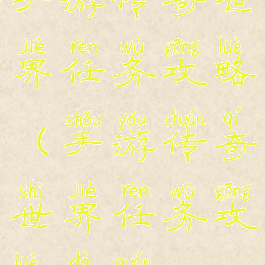 游传奇世
jiè rèn wù gōng lüè
界任务攻略
shǒu yóu chuán qí
（手游传奇
shì jiè rèn wù gōng
世界任务攻
lüè dà quán